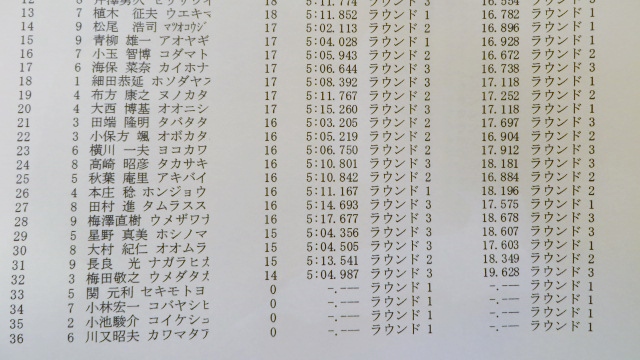 18 5:11.774 ラウンド 3 16.554 ラウンド
13 7 植木 征夫 ウエキマ 18 5:11.852 ラウンド 1 16.782 ラウンド 1
14 9 松尾 浩司 マツオコウジ 17 5:02.113 ラウンド 2 16.896 ラウンド 1
15 9 青柳 雄一 アオヤギ 17 5:04.028 ラウンド 1 16.928 ラウンド 1
16 7 小玉 智博 コダマト 17 5:05.943 ラウンド 2 16.672 ラウンド 2
17 6 海保 菜奈 カイホナ 17 5:06.644 ラウンド 3 16.738 ラウンド 3
18 1 細田恭延 ホソダヤス 17 5:08.392 ラウンド 3 17.118 ラウンド 1
19 4 布方 康之 ヌノカタ 17 5:11.767 ラウンド 2 17.252 ラウンド 2
20 4 大西 博基 オオニシ 17 5:15.260 ラウンド 3 17.118 ラウンド 1
21 3 田端 隆明 タバタタ 16 5:03.205 ラウンド 2 17.697 ラウンド 3
22 3 小保方 颯 オボカタ 16 5:05.219 ラウンド 2 16.904 ラウンド 2
23 6 横川 一夫 ヨコカワ 16 5:06.750 ラウンド 2 17.912 ラウンド 3
24 8 高崎 昭彦 タカサキ 16 5:10.801 ラウンド 3 18.181 ラウンド 3
25 5 秋葉 庵里 アキバイ 16 5:10.842 ラウンド 2 16.884 ラウンド 2
26 4 本庄 稔 ホンジョウ 16 5:11.167 ラウンド 1 18.196 ラウンド 2
27 8 田村 進 タムラスス 16 5:14.693 ラウンド 3 17.575 ラウンド 1
28 9 梅澤直樹 ウメザワナ 16 5:17.677 ラウンド 3 18.678 ラウンド 3
29 5 星野 真美 ホシノマ 15 5:04.356 ラウンド 3 18.607 ラウンド 3
30 8 大村 紀仁 オオムラ 15 5:04.505 ラウンド 2 17.603 ラウンド 1
31 9 長良 光 ナガラヒカ 15 5:13.541 ラウンド 2 18.349 ラウンド 2
32 3 梅田敬之 ウメダタカ 14 5:04.987 ラウンド 3 19.628 ラウンド 3
33 5 関 元利 セキモトヨ 0 -.--- ラウンド 1 -.--- ラウンド 1
34 7 小林宏一 コバヤシヒ 0 -.--- ラウンド 1 -.--- ラウンド 1
35 2 小池駿介 コイケシュ 0 -.--- ラウンド 1 -.--- ラウンド 1
36 6 川又昭夫 カワマタア 0 -.--- ラウンド 1 -.--- ラウンド 1